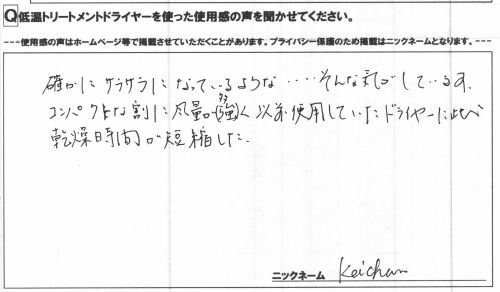 Q低温トリートメントドライヤーを使った使用感の声を聞かせてください。
---使用感の声はホームページ等で掲載させていただくことがあります。プライバシー保護のため掲載はニックネームとなります。---
確かにサラサラになっているような‥‥そんな気がしています
コンパクトな割に風量が強く以前使用していたドライヤーに比べ
乾燥時間が短縮した.
ニックネーム Keichan